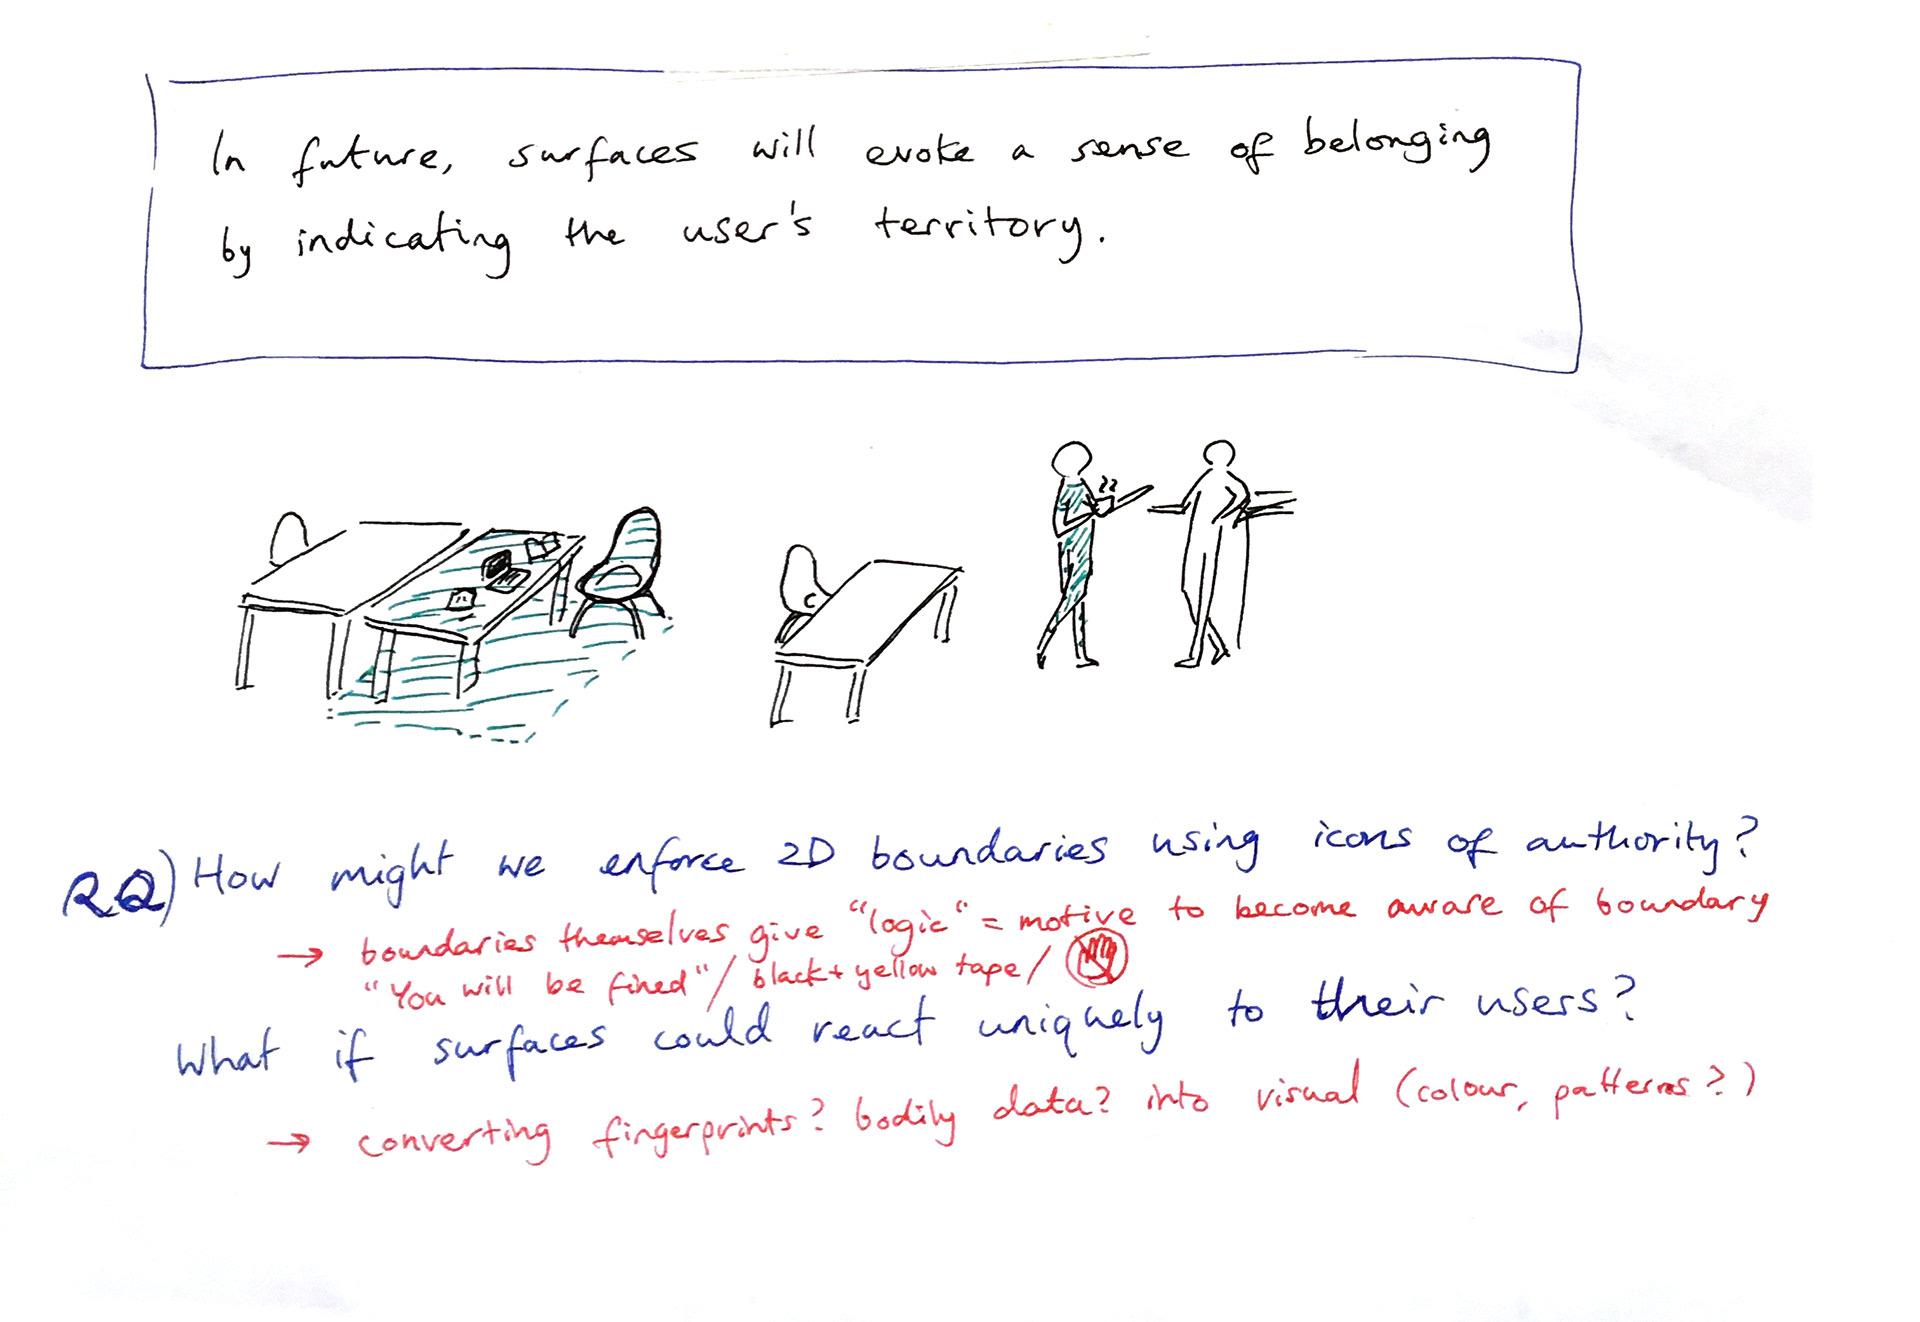 In future, surfaces will evoke a sense of belonging
by indicating the user's territory.
RQ) How might we enforce 2D boundaries using icons of authority?
→ boundaries themselves give "logic" = motive to become aware of boundary
"You will be fined" / black + yellow tape /
What if surfaces could react uniquely to their users?
→ converting fingerprints? bodily data? into visual (colour, patterns?)